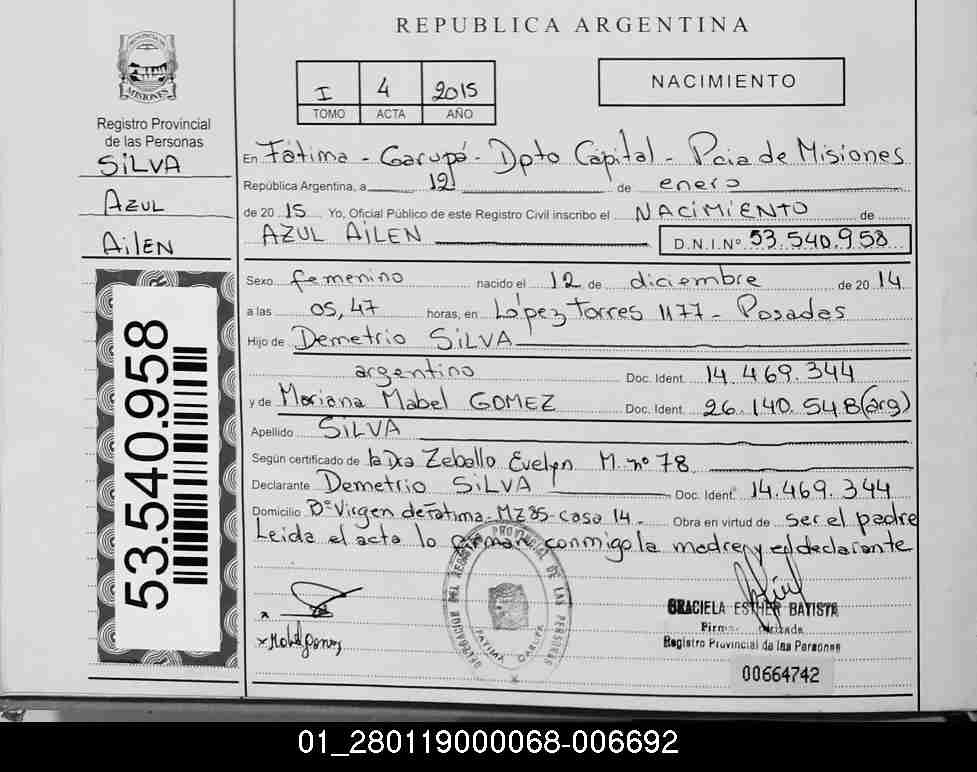 REPUBLICA ARGENTINA
PROVINCIA DE MISIONES
Registro Provincial
de las Personas
SILVA
AZUL
AiLEN
53.540.958
I 4 2015
TOMO ACTA AÑO
NACIMIENTO
En Fátima - Garupá - Dpto Capital - Pcia de Misiones
República Argentina, a 12 de enero
de 2015 Yo, Oficial Público de este Registro Civil inscribo el NACIMIENTO de
AZUL AILEN D.N.I.Nº 53.540.958
Sexo femenino nacido el 12 de diciembre de 2014
a las 05,47 horas, en López Torres 1177 - Posadas
Hijo de Demetrio SILVA
argentino Doc. Ident. 14.469.344
y de Mariana Mabel GOMEZ Doc. Ident. 26.140.548(arg)
Apellido SILVA
Según certificado de la Dra Zeballo Evelyn M. nº 78
Declarante Demetrio SILVA Doc. Ident. 14.469.344
Domicilio Bº Virgen de Fatima - MZ 35 - Casa 14. Obra en virtud de ser el padre
Leida el acta lo firman conmigo la madre y el declarante
DELEGACION DEL REGISTRO PROVINCIAL DE LAS PERSONAS
FATIMA GARUPA
x
x Mabel Gomez
GRACIELA ESTHER BATISTA
Registro Provincial de las Personas
00664742
01_280119000068-006692